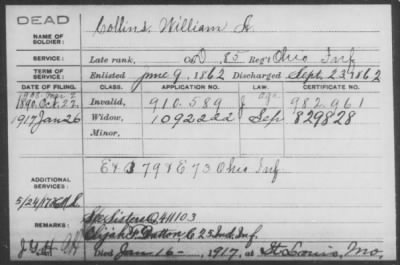 DEAD
NAME OF SOLDIER: Collins, William H.
SERVICE: Late rank, Co D, 85 Reg't Ohio Inf
TERM OF SERVICE: Enlisted June 9, 1862 Discharged Sept. 23 1862
DATE OF FILING. CLASS. APPLICATION NO. LAW. CERTIFICATE NO.
1908 Mar 2
1890 Oct. 27 Invalid, 910.589 age 982.961
1917 Jan 26 Widow, 1092222 Sep 829828
Minor,
ADDITIONAL SERVICES: E 79 & E 73 Ohio Inf.
5/24/17
REMARKS: See Sisters O 411103
Elijah F Batton C 25 Ind. Inf.
Died Jan 16 - , 1917, at St Louis, Mo.